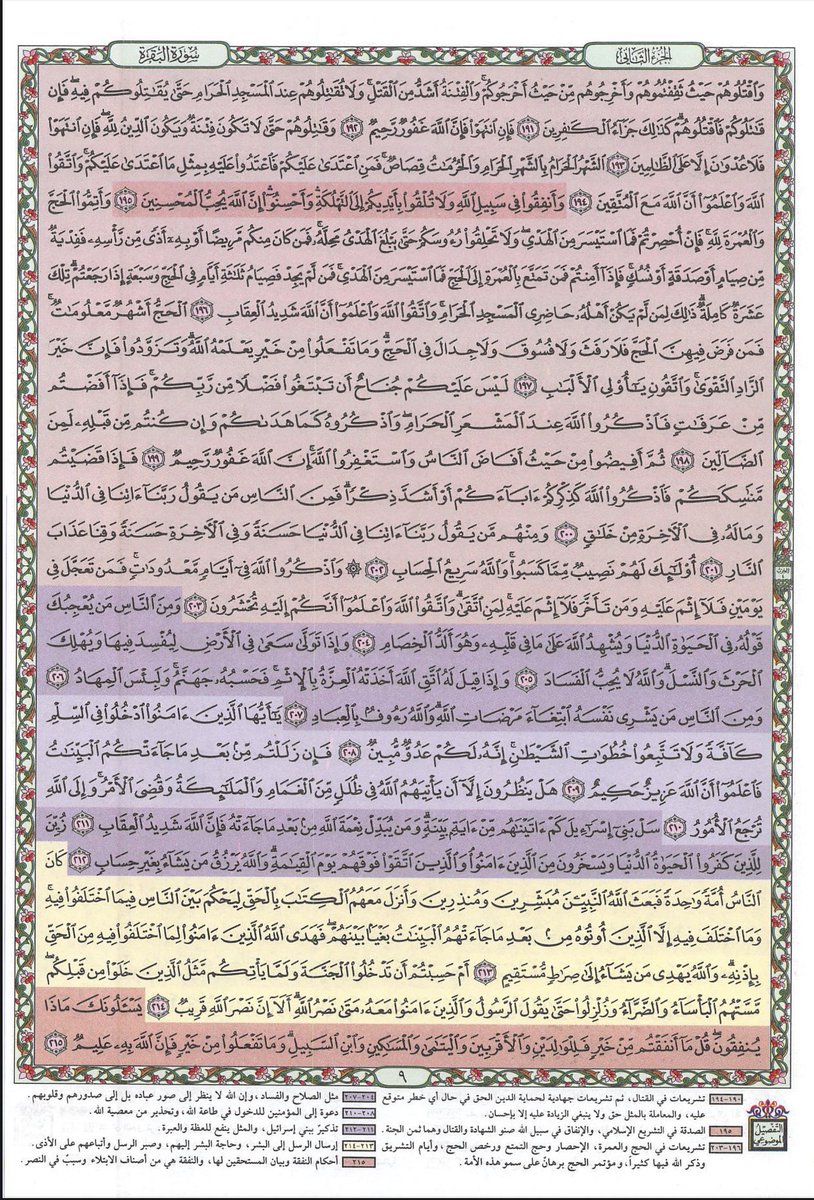 الجزء الثاني
سورة البقرة
وَٱقْتُلُوهُمْ حَيْثُ ثَقِفْتُمُوهُمْ وَأَخْرِجُوهُم مِّنْ حَيْثُ أَخْرَجُوكُمْ ۚ وَٱلْفِتْنَةُ أَشَدُّ مِنَ ٱلْقَتْلِ ۚ وَلَا تُقَٰتِلُوهُمْ عِندَ ٱلْمَسْجِدِ ٱلْحَرَامِ حَتَّىٰ يُقَٰتِلُوكُمْ فِيهِ ۖ فَإِن
قَٰتَلُوكُمْ فَٱقْتُلُوهُمْ ۗ كَذَٰلِكَ جَزَآءُ ٱلْكَٰفِرِينَ ١٩١ فَإِنِ ٱنتَهَوْا۟ فَإِنَّ ٱللَّهَ غَفُورٌ رَّحِيمٌ ١٩٢ وَقَٰتِلُوهُمْ حَتَّىٰ لَا تَكُونَ فِتْنَةٌ وَيَكُونَ ٱلدِّينُ لِلَّهِ ۖ فَإِنِ ٱنتَهَوْا۟
فَلَا عُدْوَٰنَ إِلَّا عَلَى ٱلظَّٰلِمِينَ ١٩٣ ٱلشَّهْرُ ٱلْحَرَامُ بِٱلشَّهْرِ ٱلْحَرَامِ وَٱلْحُرُمَٰتُ قِصَاصٌ ۚ فَمَنِ ٱعْتَدَىٰ عَلَيْكُمْ فَٱعْتَدُوا۟ عَلَيْهِ بِمِثْلِ مَا ٱعْتَدَىٰ عَلَيْكُمْ ۚ وَٱتَّقُوا۟
ٱللَّهَ وَٱعْلَمُوٓا۟ أَنَّ ٱللَّهَ مَعَ ٱلْمُتَّقِينَ ١٩٤ وَأَنفِقُوا۟ فِى سَبِيلِ ٱللَّهِ وَلَا تُلْقُوا۟ بِأَيْدِيكُمْ إِلَى ٱلتَّهْلُكَةِ ۛ وَأَحْسِنُوٓا۟ ۛ إِنَّ ٱللَّهَ يُحِبُّ ٱلْمُحْسِنِينَ ١٩٥ وَأَتِمُّوا۟ ٱلْحَجَّ
وَٱلْعُمْرَةَ لِلَّهِ ۚ فَإِنْ أُحْصِرْتُمْ فَمَا ٱسْتَيْسَرَ مِنَ ٱلْهَدْىِ ۖ وَلَا تَحْلِقُوا۟ رُءُوسَكُمْ حَتَّىٰ يَبْلُغَ ٱلْهَدْىُ مَحِلَّهُۥ ۚ فَمَن كَانَ مِنكُم مَّرِيضًا أَوْ بِهِۦٓ أَذًى مِّن رَّأْسِهِۦ فَفِدْيَةٌ
مِّن صِيَامٍ أَوْ صَدَقَةٍ أَوْ نُسُكٍ ۚ فَإِذَآ أَمِنتُمْ فَمَن تَمَتَّعَ بِٱلْعُمْرَةِ إِلَى ٱلْحَجِّ فَمَا ٱسْتَيْسَرَ مِنَ ٱلْهَدْىِ ۚ فَمَن لَّمْ يَجِدْ فَصِيَامُ ثَلَٰثَةِ أَيَّامٍ فِى ٱلْحَجِّ وَسَبْعَةٍ إِذَا رَجَعْتُمْ ۗ تِلْكَ
عَشَرَةٌ كَامِلَةٌ ۗ ذَٰلِكَ لِمَن لَّمْ يَكُنْ أَهْلُهُۥ حَاضِرِى ٱلْمَسْجِدِ ٱلْحَرَامِ ۚ وَٱتَّقُوا۟ ٱللَّهَ وَٱعْلَمُوٓا۟ أَنَّ ٱللَّهَ شَدِيدُ ٱلْعِقَابِ ١٩٦ ٱلْحَجُّ أَشْهُرٌ مَّعْلُومَٰتٌ ۚ
فَمَن فَرَضَ فِيهِنَّ ٱلْحَجَّ فَلَا رَفَثَ وَلَا فُسُوقَ وَلَا جِدَالَ فِى ٱلْحَجِّ ۗ وَمَا تَفْعَلُوا۟ مِنْ خَيْرٍ يَعْلَمْهُ ٱللَّهُ ۗ وَتَزَوَّدُوا۟ فَإِنَّ خَيْرَ
ٱلزَّادِ ٱلتَّقْوَىٰ ۚ وَٱتَّقُونِ يَٰٓأُو۟لِى ٱلْأَلْبَٰبِ ١٩٧ لَيْسَ عَلَيْكُمْ جُنَاحٌ أَن تَبْتَغُوا۟ فَضْلًا مِّن رَّبِّكُمْ ۚ فَإِذَآ أَفَضْتُم
مِّنْ عَرَفَٰتٍ فَٱذْكُرُوا۟ ٱللَّهَ عِندَ ٱلْمَشْعَرِ ٱلْحَرَامِ ۖ وَٱذْكُرُوهُ كَمَا هَدَىٰكُمْ وَإِن كُنتُم مِّن قَبْلِهِۦ لَمِنَ
ٱلضَّآلِّينَ ١٩٨ ثُمَّ أَفِيضُوا۟ مِنْ حَيْثُ أَفَاضَ ٱلنَّاسُ وَٱسْتَغْفِرُوا۟ ٱللَّهَ ۚ إِنَّ ٱللَّهَ غَفُورٌ رَّحِيمٌ ١٩٩ فَإِذَا قَضَيْتُم
مَّنَٰسِكَكُمْ فَٱذْكُرُوا۟ ٱللَّهَ كَذِكْرِكُمْ ءَابَآءَكُمْ أَوْ أَشَدَّ ذِكْرًا ۗ فَمِنَ ٱلنَّاسِ مَن يَقُولُ رَبَّنَآ ءَاتِنَا فِى ٱلدُّنْيَا
وَمَا لَهُۥ فِى ٱلْءَاخِرَةِ مِنْ خَلَٰقٍ ٢٠٠ وَمِنْهُم مَّن يَقُولُ رَبَّنَآ ءَاتِنَا فِى ٱلدُّنْيَا حَسَنَةً وَفِى ٱلْءَاخِرَةِ حَسَنَةً وَقِنَا عَذَابَ
ٱلنَّارِ ٢٠١ أُو۟لَٰٓئِكَ لَهُمْ نَصِيبٌ مِّمَّا كَسَبُوا۟ ۚ وَٱللَّهُ سَرِيعُ ٱلْحِسَابِ ٢٠٢ ۞ وَٱذْكُرُوا۟ ٱللَّهَ فِىٓ أَيَّامٍ مَّعْدُودَٰتٍ ۚ فَمَن تَعَجَّلَ فِى
يَوْمَيْنِ فَلَآ إِثْمَ عَلَيْهِ وَمَن تَأَخَّرَ فَلَآ إِثْمَ عَلَيْهِ ۚ لِمَنِ ٱتَّقَىٰ ۗ وَٱتَّقُوا۟ ٱللَّهَ وَٱعْلَمُوٓا۟ أَنَّكُمْ إِلَيْهِ تُحْشَرُونَ ٢٠٣ وَمِنَ ٱلنَّاسِ مَن يُعْجِبُكَ
قَوْلُهُۥ فِى ٱلْحَيَوٰةِ ٱلدُّنْيَا وَيُشْهِدُ ٱللَّهَ عَلَىٰ مَا فِى قَلْبِهِۦ وَهُوَ أَلَدُّ ٱلْخِصَامِ ٢٠٤ وَإِذَا تَوَلَّىٰ سَعَىٰ فِى ٱلْأَرْضِ لِيُفْسِدَ فِيهَا وَيُهْلِكَ
ٱلْحَرْثَ وَٱلنَّسْلَ ۗ وَٱللَّهُ لَا يُحِبُّ ٱلْفَسَادَ ٢٠٥ وَإِذَا قِيلَ لَهُ ٱتَّقِ ٱللَّهَ أَخَذَتْهُ ٱلْعِزَّةُ بِٱلْإِثْمِ ۚ فَحَسْبُهُۥ جَهَنَّمُ ۚ وَلَبِئْسَ ٱلْمِهَادُ ٢٠٦
وَمِنَ ٱلنَّاسِ مَن يَشْرِى نَفْسَهُ ٱبْتِغَآءَ مَرْضَاتِ ٱللَّهِ ۗ وَٱللَّهُ رَءُوفٌۢ بِٱلْعِبَادِ ٢٠٧ يَٰٓأَيُّهَا ٱلَّذِينَ ءَامَنُوا۟ ٱدْخُلُوا۟ فِى ٱلسِّلْمِ
كَآفَّةً وَلَا تَتَّبِعُوا۟ خُطُوَٰتِ ٱلشَّيْطَٰنِ ۚ إِنَّهُۥ لَكُمْ عَدُوٌّ مُّبِينٌ ٢٠٨ فَإِن زَلَلْتُم مِّنۢ بَعْدِ مَا جَآءَتْكُمُ ٱلْبَيِّنَٰتُ
فَٱعْلَمُوٓا۟ أَنَّ ٱللَّهَ عَزِيزٌ حَكِيمٌ ٢٠٩ هَلْ يَنظُرُونَ إِلَّآ أَن يَأْتِيَهُمُ ٱللَّهُ فِى ظُلَلٍ مِّنَ ٱلْغَمَامِ وَٱلْمَلَٰٓئِكَةُ وَقُضِىَ ٱلْأَمْرُ ۚ وَإِلَى ٱللَّهِ
تُرْجَعُ ٱلْأُمُورُ ٢١٠ سَلْ بَنِىٓ إِسْرَٰٓءِيلَ كَمْ ءَاتَيْنَٰهُم مِّنْ ءَايَةٍۭ بَيِّنَةٍ ۗ وَمَن يُبَدِّلْ نِعْمَةَ ٱللَّهِ مِنۢ بَعْدِ مَا جَآءَتْهُ فَإِنَّ ٱللَّهَ شَدِيدُ ٱلْعِقَابِ ٢١١ زُيِّنَ
لِلَّذِينَ كَفَرُوا۟ ٱلْحَيَوٰةُ ٱلدُّنْيَا وَيَسْخَرُونَ مِنَ ٱلَّذِينَ ءَامَنُوا۟ ۘ وَٱلَّذِينَ ٱتَّقَوْا۟ فَوْقَهُمْ يَوْمَ ٱلْقِيَٰمَةِ ۗ وَٱللَّهُ يَرْزُقُ مَن يَشَآءُ بِغَيْرِ حِسَابٍ ٢١٢ كَانَ
ٱلنَّاسُ أُمَّةً وَٰحِدَةً فَبَعَثَ ٱللَّهُ ٱلنَّبِيِّۦنَ مُبَشِّرِينَ وَمُنذِرِينَ وَأَنزَلَ مَعَهُمُ ٱلْكِتَٰبَ بِٱلْحَقِّ لِيَحْكُمَ بَيْنَ ٱلنَّاسِ فِيمَا ٱخْتَلَفُوا۟ فِيهِ ۚ
وَمَا ٱخْتَلَفَ فِيهِ إِلَّا ٱلَّذِينَ أُوتُوهُ مِنۢ بَعْدِ مَا جَآءَتْهُمُ ٱلْبَيِّنَٰتُ بَغْيًۢا بَيْنَهُمْ ۖ فَهَدَى ٱللَّهُ ٱلَّذِينَ ءَامَنُوا۟ لِمَا ٱخْتَلَفُوا۟ فِيهِ مِنَ ٱلْحَقِّ
بِإِذْنِهِۦ ۗ وَٱللَّهُ يَهْدِى مَن يَشَآءُ إِلَىٰ صِرَٰطٍ مُّسْتَقِيمٍ ٢١٣ أَمْ حَسِبْتُمْ أَن تَدْخُلُوا۟ ٱلْجَنَّةَ وَلَمَّا يَأْتِكُم مَّثَلُ ٱلَّذِينَ خَلَوْا۟ مِن قَبْلِكُم ۖ
مَّسَّتْهُمُ ٱلْبَأْسَآءُ وَٱلضَّرَّآءُ وَزُلْزِلُوا۟ حَتَّىٰ يَقُولَ ٱلرَّسُولُ وَٱلَّذِينَ ءَامَنُوا۟ مَعَهُۥ مَتَىٰ نَصْرُ ٱللَّهِ ۗ أَلَآ إِنَّ نَصْرَ ٱللَّهِ قَرِيبٌ ٢١٤ يَسْـَٔلُونَكَ مَاذَا
يُنفِقُونَ ۖ قُلْ مَآ أَنفَقْتُم مِّنْ خَيْرٍ فَلِلْوَٰلِدَيْنِ وَٱلْأَقْرَبِينَ وَٱلْيَتَٰمَىٰ وَٱلْمَسَٰكِينِ وَٱبْنِ ٱلسَّبِيلِ ۗ وَمَا تَفْعَلُوا۟ مِنْ خَيْرٍ فَإِنَّ ٱللَّهَ بِهِۦ عَلِيمٌ ٢١٥
٩
التفصيل الموضوعي
١٩٠-١٩٤ تشريعات في القتال، ثم تشريعات جهادية لحماية الدين الحق في حال أي خطر متوقع
عليه، والمعاملة بالمثل حق ولا ينبغي الزيادة عليه إلا بإحسان.
١٩٥ الصدقة في التشريع الإسلامي، والإنفاق في سبيل الله صنو الشهادة والقتال وهما ثمن الجنة.
١٩٦-٢٠٣ تشريعات في الحج والعمرة، الإحصار وحج التمتع ورخص الحج، وأيام التشريق
وذكر الله فيها كثيراً، ومؤتمر الحج برهانٌ على سمو هذه الأمة.
٢٠٤-٢٠٧ مثل الصلاح والفساد، وإن الله لا ينظر إلى صور عباده بل إلى صدورهم وقلوبهم.
٢٠٨-٢١٠ دعوة إلى المؤمنين للدخول في طاعة الله، وتحذير من معصية الله.
٢١١-٢١٢ تذكيرٌ ببني إسرائيل، والمثل ينفع للعظة والعبرة.
٢١٣-٢١٤ إرسال الرسل إلى البشر، وحاجة البشر إليهم، وصبر الرسل وأتباعهم على الأذى.
٢١٥ أحكام النفقة وبيان المستحقين لها، والنفقة هي من أصناف الابتلاء وسببٌ في النصر.